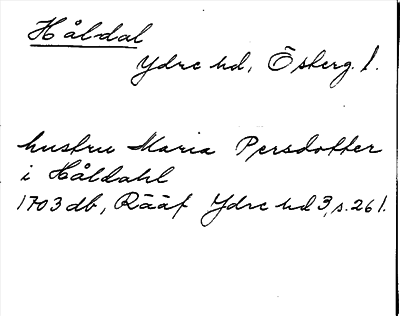 Håldal
Ydre hd, Ösberg. l.
hustru Maria Persdotter
i Håldahl
1703 db, Rääf Ydre hd 3, s. 261.